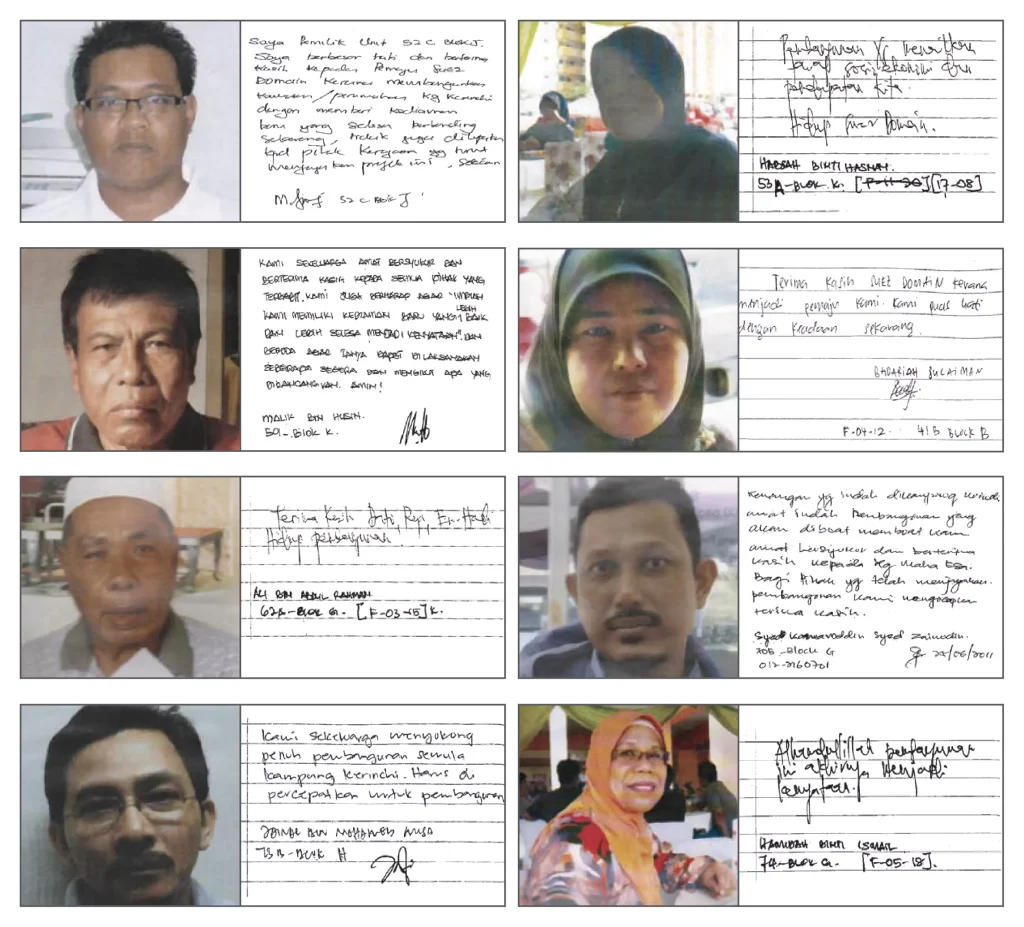 Saya Pemilik Unit 52 C Blok J.
Saya berbesar hati dan berterima
kasih kepada Pemaju Suez
Domain Kerana membangunkan
kawasan / perumahan Kg Kerinchi
dengan memberi kediaman
baru yang selesa berbanding
sekarang, tidak juga dilupakan
kpd pihak Kerajaan yg turut
menjayakan projek ini. Sekian
52 C Blok J
Pembangunan yg
taraf sosioekonomi dan
pendapatan kita.
Hidup Suez Domain.
HABSAH BINTI HASNAH.
53A-BLOK K. [F-11-20] [17-08]
KAMI SEKELUARGA AMAT BERSYUKUR DAN
BERTERIMA KASIH KEPADA SEMUA PIHAK YANG
TERBABIT. KAMI JUGA BERHARAP AGAR "IMPIAN
KAMI MEMILIKI KEDIAMAN BARU YANG LEBIH BAIK
DAN LEBIH SELESA MENJADI KENYATAAN" DAN
BERDOA AGAR IANYA DAPAT DILAKSANAKAN
SEBERAPA SEGERA DAN MENGIKUT APA YANG
DIRANCANGKAN. AMIN!
MALIK BIN HUSIN.
59- BLOK K.
Terima Kasih SUEZ DOMAIN kerana
menjadi pemaju kami. Kami puas hati
dengan keadaan sekarang.
BADARIAH SULAIMAN
F-04-12 41B BLOCK B
Terima Kasih
Hidup pembangunan!
ALI BIN ABDUL RAHMAN
62A-BLOK G. [F-03-15] K.
Kenangan yg indah dikampung kerinchi
amat indah Pembangunan yang
akan dibuat membuat kami
amat bersyukur dan berterima
kasih kepada Yg Maha Esa.
Bagi pihak yg telah menjayakan
pembangunan kami mengucapkan
terima kasih.
Syed Kamaroddin Syed Zainudin.
70B -Block G
012-2160701 22/06/2011
Kami sekeluarga menyokong
penuh pembangunan semula
kampung kerinchi. Harus di
percepatkan untuk pembangunan
BIN MOHAMED
73B-BLOK H
Alhamdulillah pembangunan
ini akhirnya menjadi
kenyataan.
HAMIDAH BINTI ISMAIL
74-BLOK G. [F-05-18].